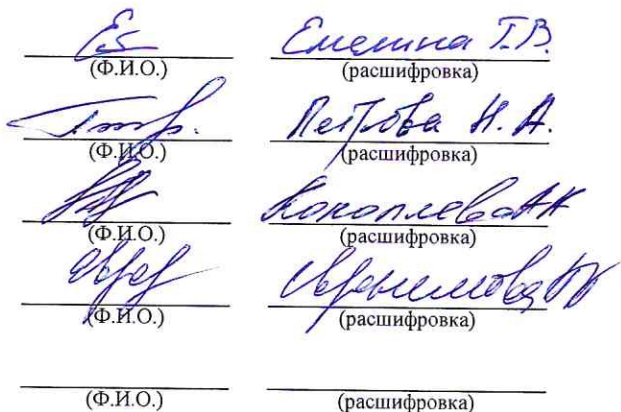 Емелина Т.В.
(Ф.И.О.) (расшифровка)
Петрова Н.А.
(Ф.И.О.) (расшифровка)
Коноплева А.К
(Ф.И.О.) (расшифровка)
(Ф.И.О.) (расшифровка)
(Ф.И.О.) (расшифровка)